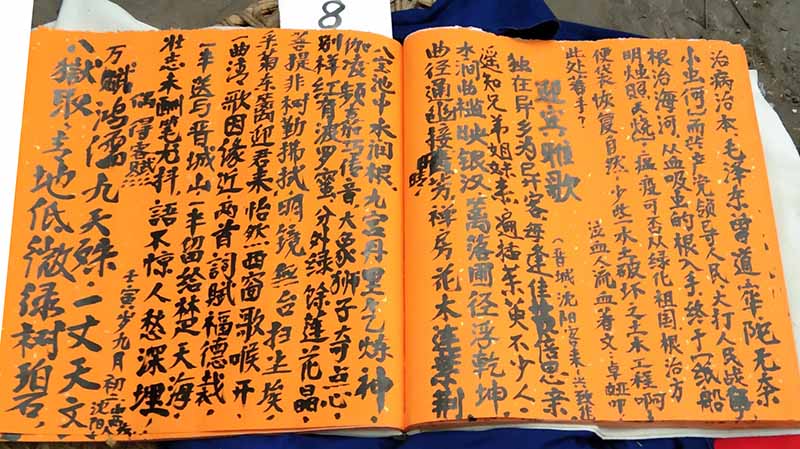 8
治病治本，毛泽东曾道
小虫何，共产党领导人民，大打人民战争
根治海河，从血吸虫的根入手，终于一纸船
明烛照天烧，瘟疫可否从绿化祖国，根治方
便袋，恢复自然，少些水土破坏之土木工程啊
此处着手？
泣血人流血著文·卓
迎宾雅歌
（晋城沈阳客来·兴致作
独在异乡为异客每逢佳节倍思亲
遥知兄弟姐妹来遍插茱萸不少人，
水涧出槛映银汉，万落圃径浮乾坤
曲径通幽接芳禅房花木连紫荆
八宝池中水润根，九宫丹里乞炼神，
伽凌频茄巧信音，大象狮子奇点心，
别样红有波罗蜜，分外绿馀莲花晶，
菩提非树勤拂拭明镜无台扫尘埃，
采菊东篱迎君来怡然西窗歌喉开，
一曲湾歌因缘近两首词赋福德栽，
一半送与晋城山一半留给楚天海，
壮志未酬笔尤抖，語不惊人愁深埋！
偶得客赋：
壬寅岁九月初二
沈阳人
万斛鸿儒九天殊，一丈天文
八獄取土地低微绿树碧，